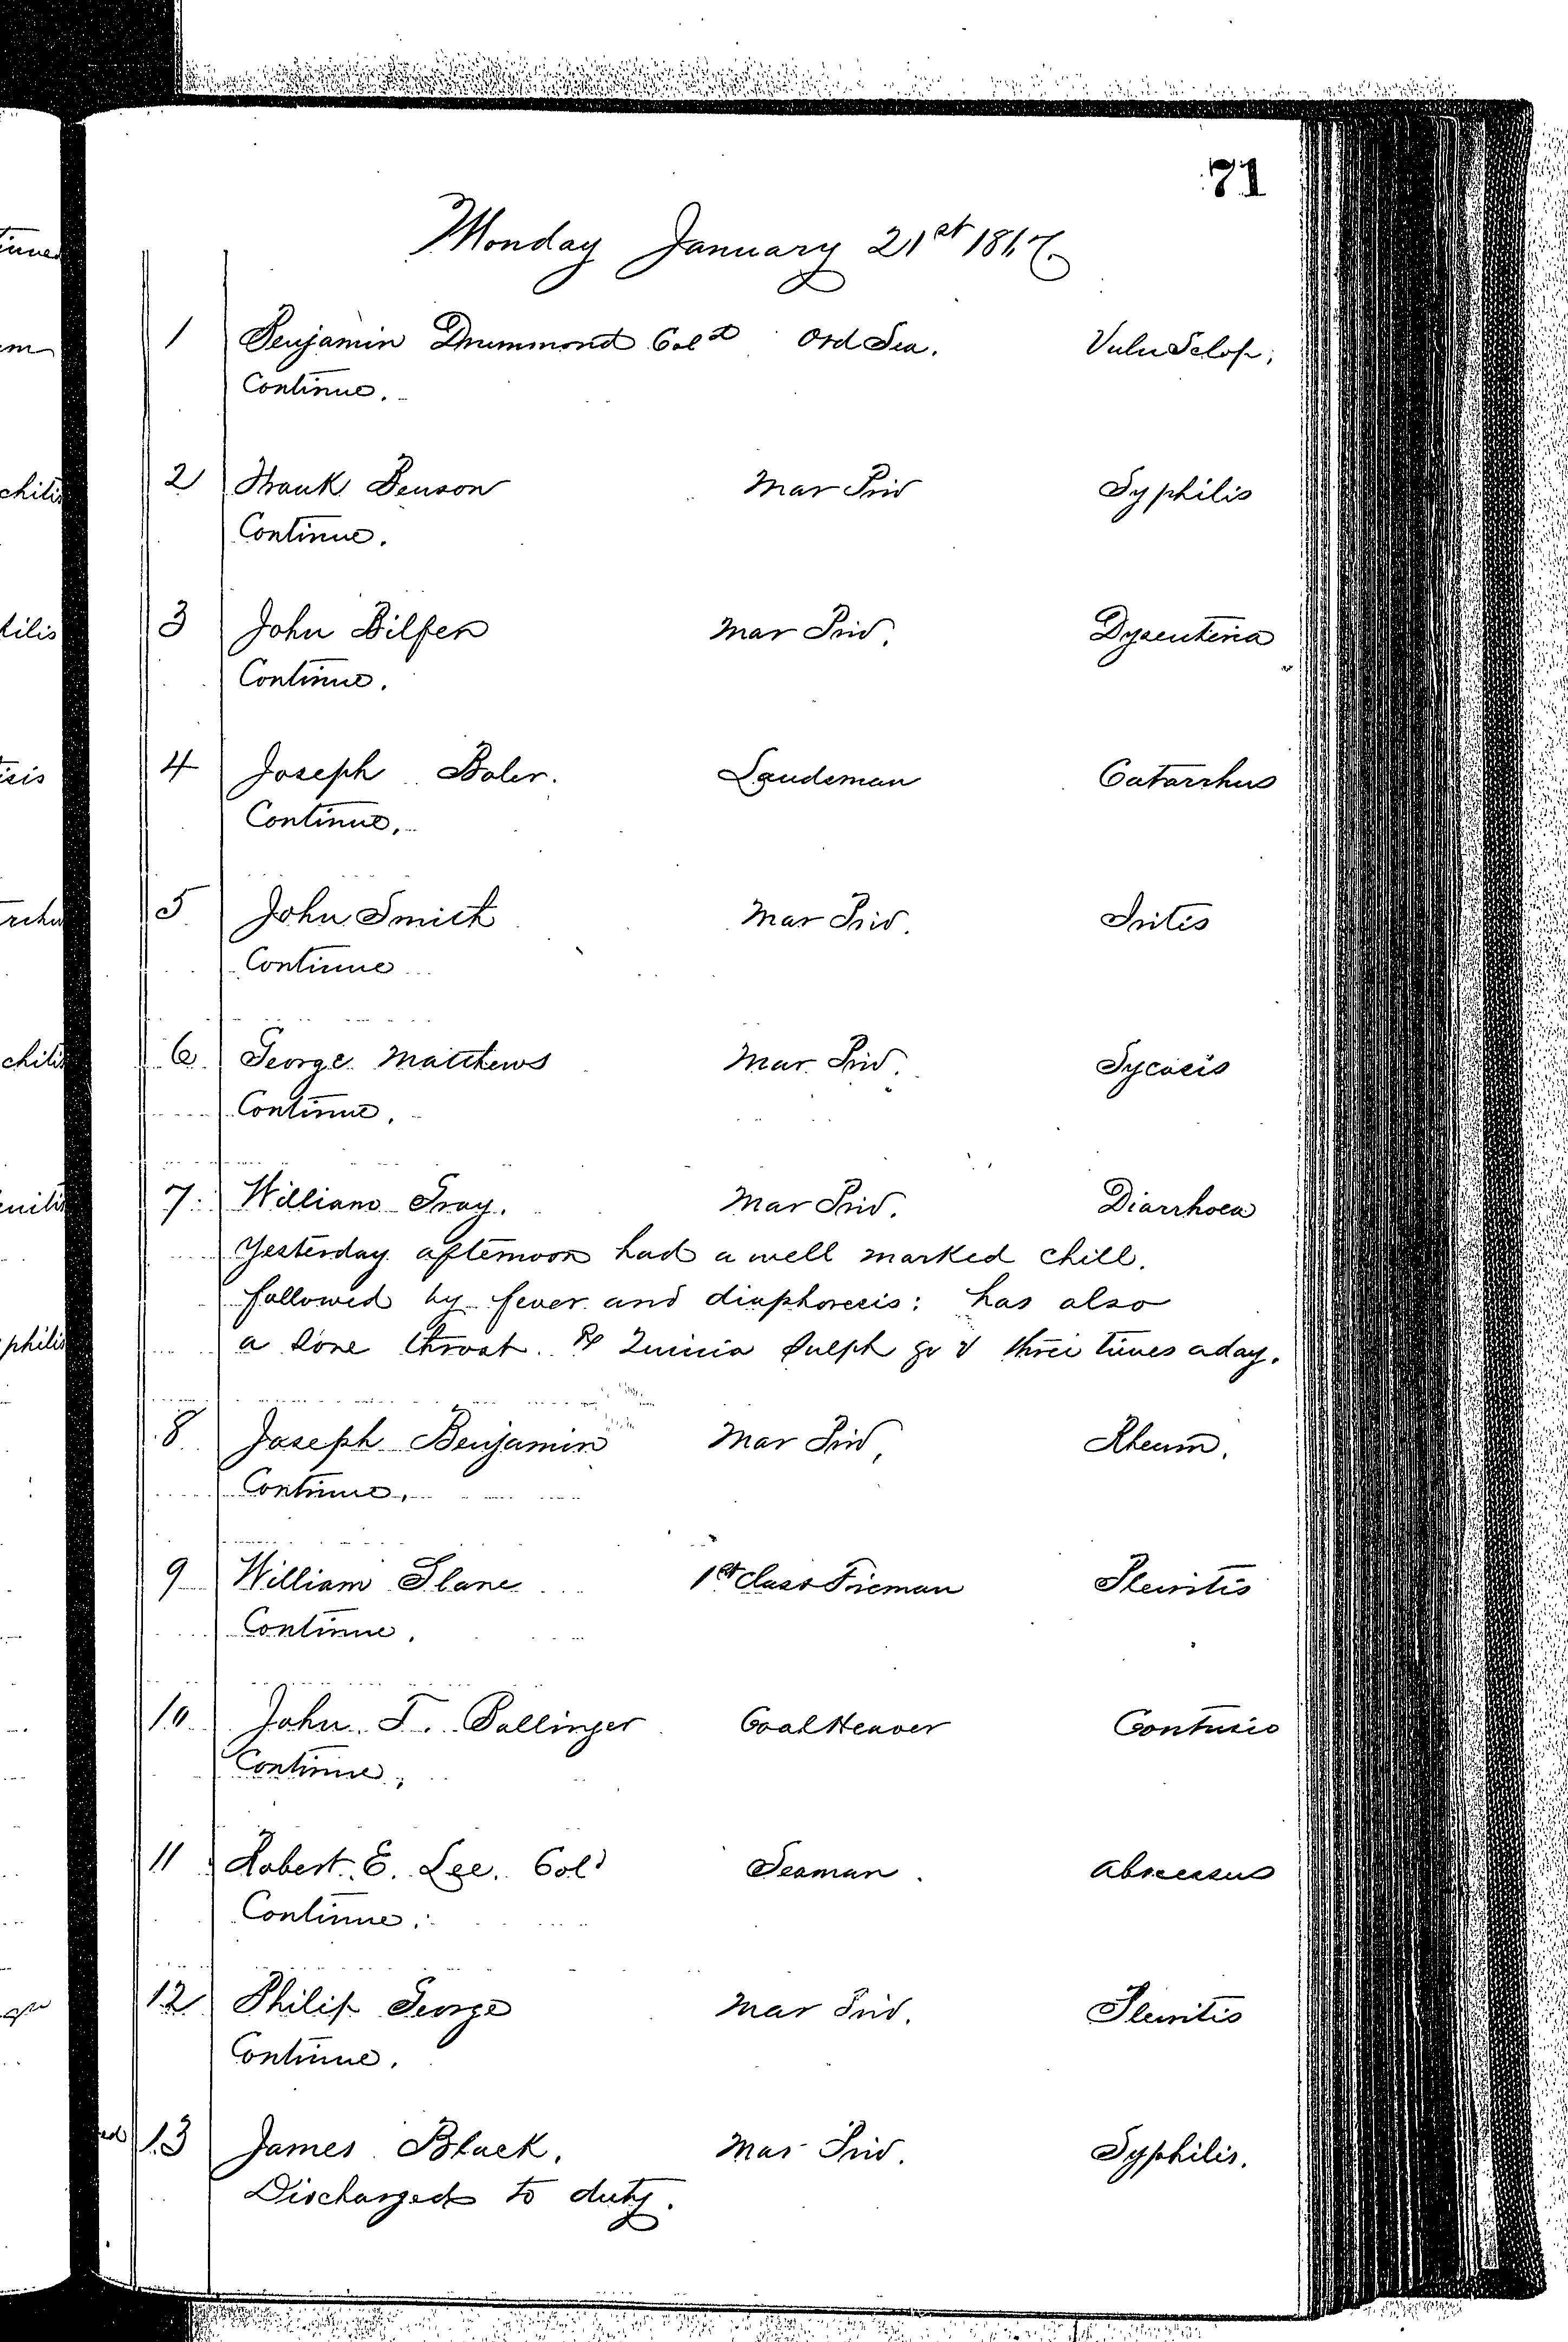 71
Monday January 21st 1867.
1 Benjamin Drummond Cold Ord Sea. Vuln Sclop.
Continue.
2 Frank Benson Mar Priv Syphilis
Continue.
3 John Bilfer Mar Priv. Dysenteria
Continue.
4 Joseph Boler. Landsman Catarrhus
Continue.
5 John Smith Mar Priv. Iritis
Continue
6 George Matthews Mar Priv. Sycosis
Continue.
7. William Gray. Mar Priv. Diarrhoea
Yesterday afternoon had a well marked chill.
followed by fever and diaphoresis: has also
a sore throat. Rx Quinia Sulph gr v three times a day.
8 Joseph Benjamin Mar Priv, Rheum.
Continue.
9 William Slane 1st Class Fireman Pleuritis
Continue.
10 John T. Ballinger Coal Heaver Contusio
Continue.
11 Robert E. Lee. Cold Seaman. Abscessus
Continue.
12 Philip George Mar Priv. Pleuritis
Continue.
13 James Black. Mar Priv. Syphilis.
Discharged to duty.